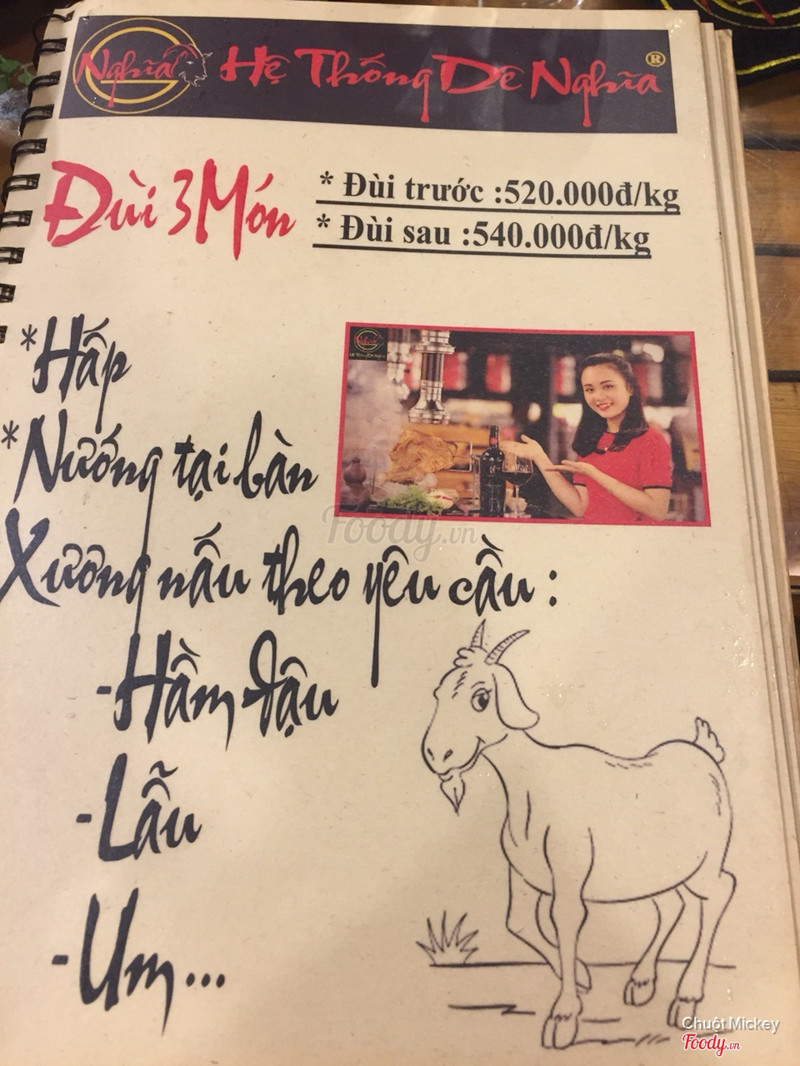 Nghĩa
Hệ Thống Dê Nghĩa ®
Đùi 3 Món
* Đùi trước :520.000đ/kg
* Đùi sau :540.000đ/kg
*Hấp
*Nướng tại bàn
Xương nấu theo yêu cầu :
-Hầm đậu
-Lẩu
-Um...
Foody.vn
Chuột Mickey
Foody.vn